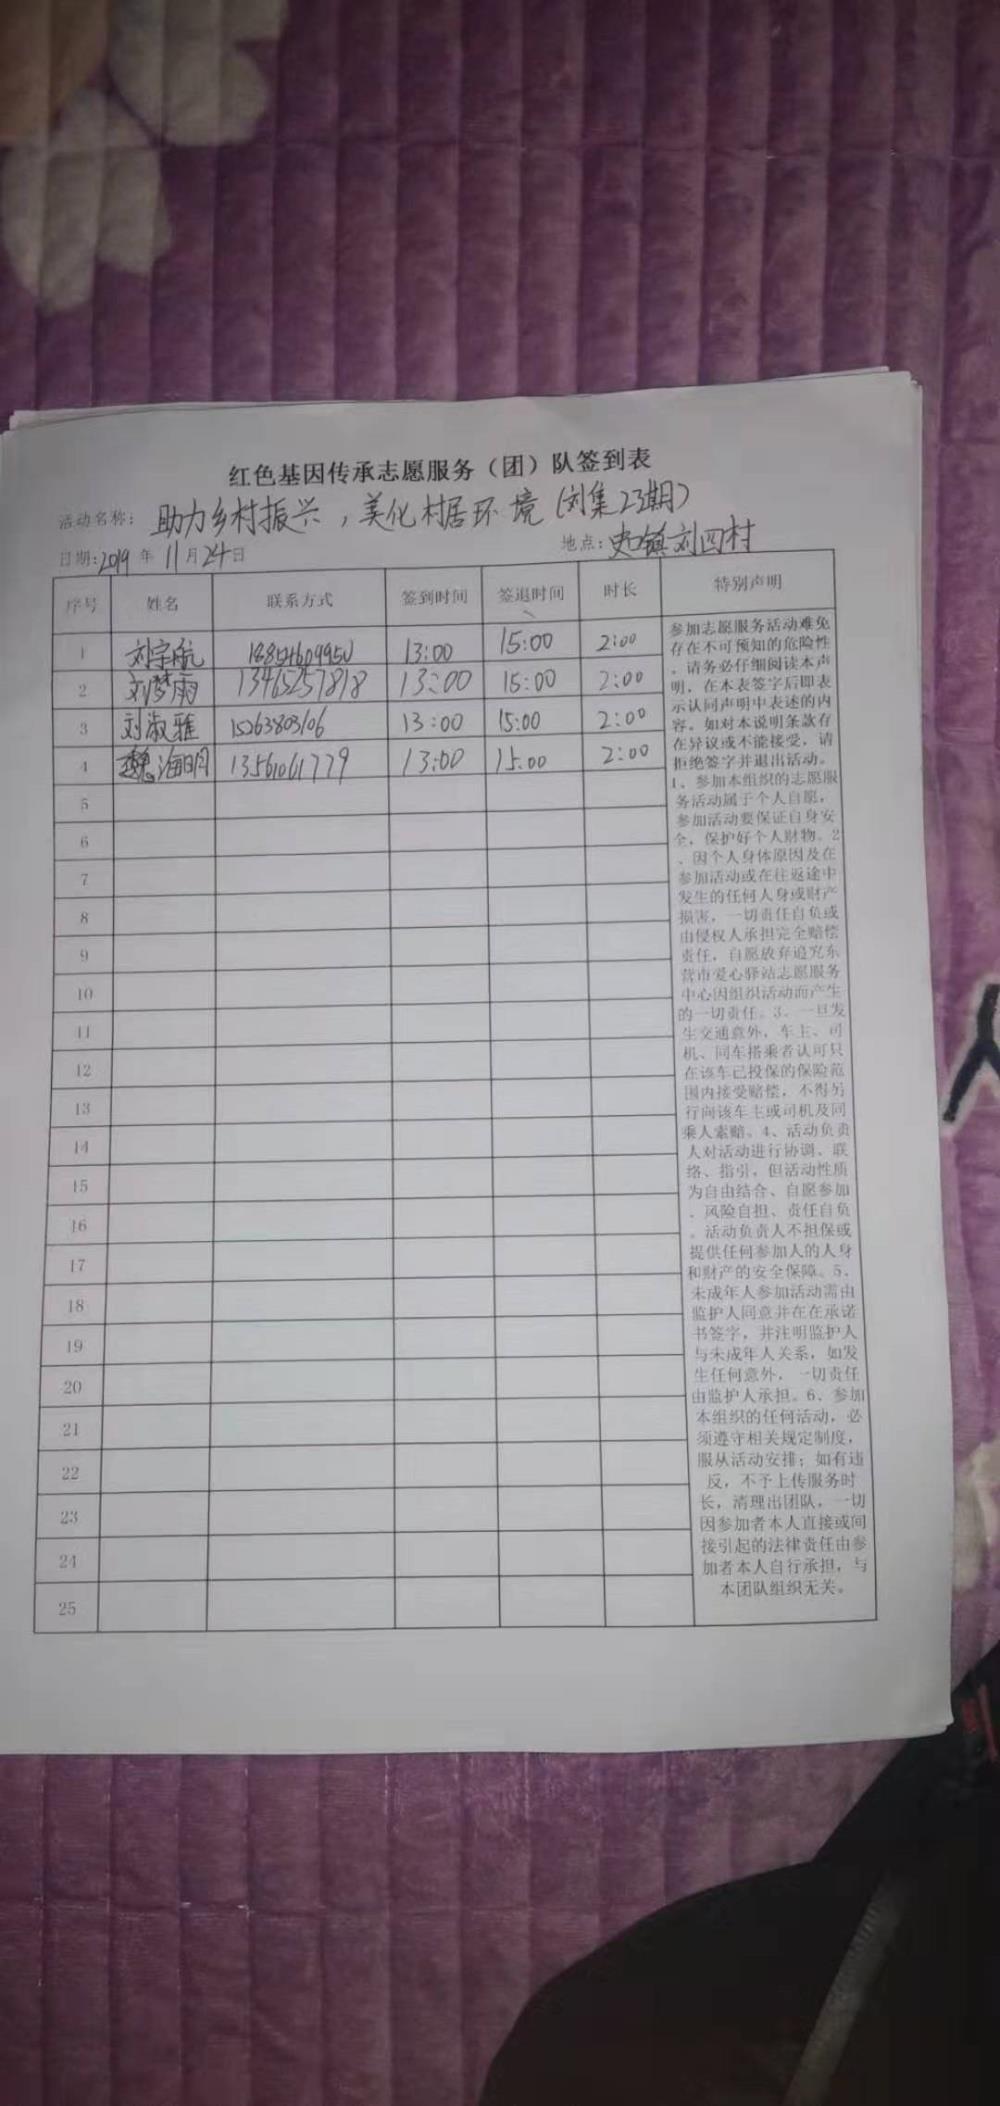 红色基因传承志愿服务（团）队签到表
活动名称：助力乡村振兴，美化村居环境（刘集23期）
日期：2019年11月24日 地点：史口镇刘四村
序号 姓名 联系方式 签到时间 签退时间 时长 特别声明
1 刘宇航 13:00 15:00 2:00
2 刘梦雨 13465257818 13:00 15:00 2:00
3 刘淑雅 15263803106 13:00 15:00 2:00
4 魏海明 13561061779 13:00 15:00 2:00
5
6
7
8
9
10
11
12
13
14
15
16
17
18
19
20
21
22
23
24
25
参加志愿服务活动难免
存在不可预知的危险性
，请务必仔细阅读本声
明，在本表签字后即表
示认同声明中表述的内
容。如对本说明条款存
在异议或不能接受，请
拒绝签字并退出活动。
1、参加本组织的志愿服
务活动属于个人自愿，
参加活动要保证自身安
全，保护好个人财物。2
、因个人身体原因及在
参加活动或在往返途中
发生的任何人身或财产
损害，一切责任自负或
由侵权人承担完全赔偿
责任，自愿放弃追究东
营市爱心驿站志愿服务
中心因组织活动而产生
的一切责任。3、一旦发
生交通意外，车主、司
机、同车搭乘者认可只
在该车已投保的保险范
围内接受赔偿，不得另
行向该车主或司机及同
乘人索赔。4、活动负责
人对活动进行协调、联
络、指引，但活动性质
为自由结合、自愿参加
、风险自担、责任自负
。活动负责人不担保或
提供任何参加人的人身
和财产的安全保障。5、
未成年人参加活动需由
监护人同意并在在承诺
书签字，并注明监护人
与未成年人关系，如发
生任何意外，一切责任
由监护人承担。6、参加
本组织的任何活动，必
须遵守相关规定制度，
服从活动安排；如有违
反，不予上传服务时
长，清理出团队，一切
因参加者本人直接或间
接引起的法律责任由参
加者本人自行承担，与
本团队组织无关。